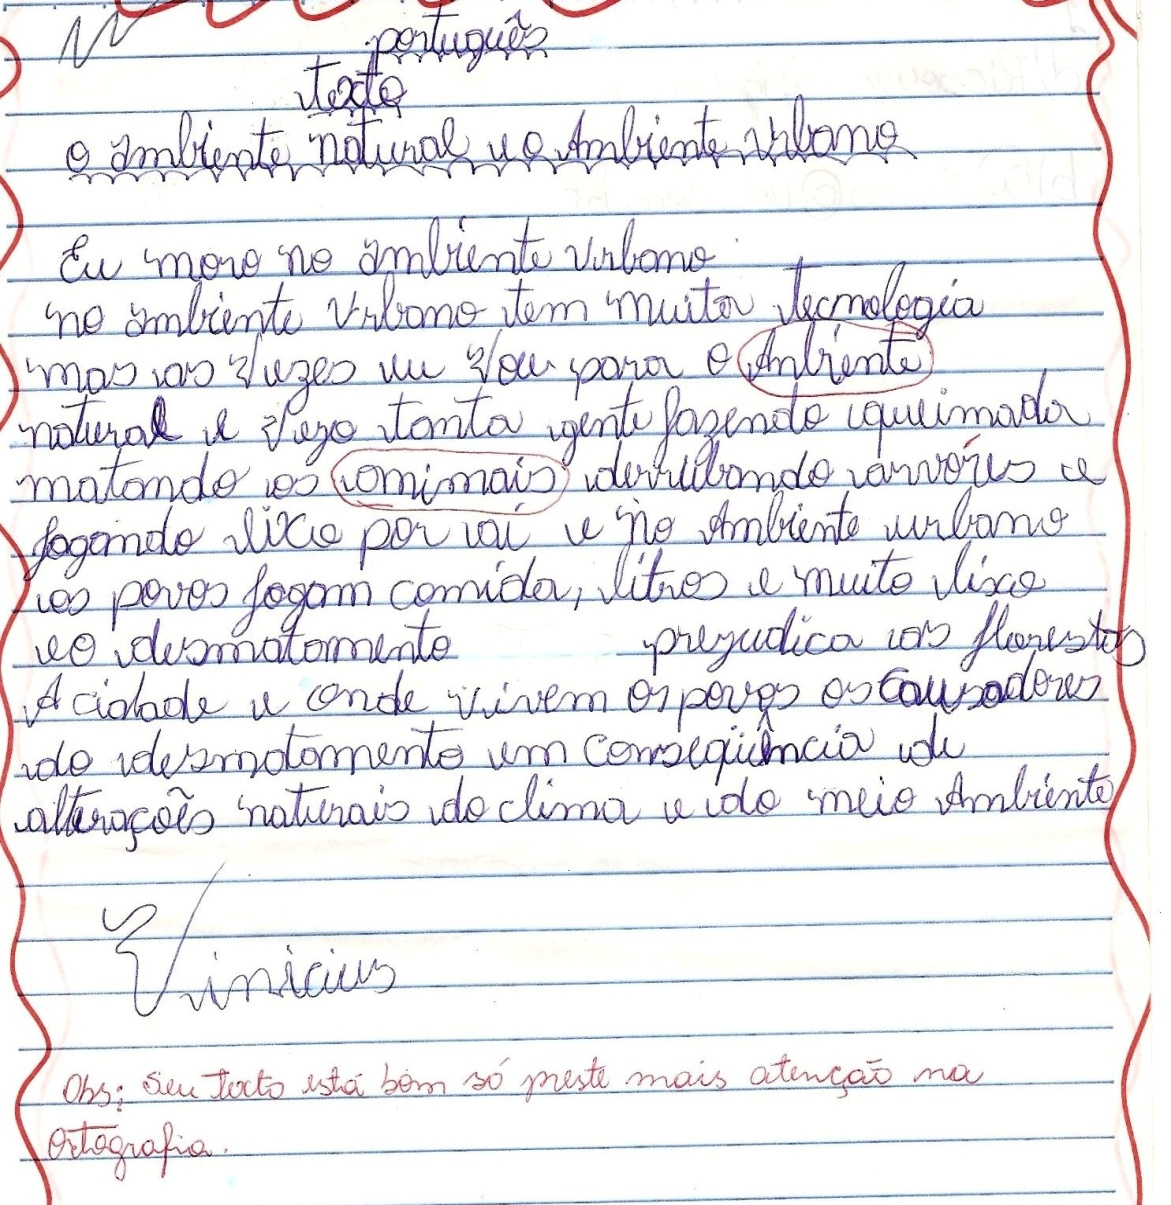 português
texto
o ambiente natural e o Ambiente Urbano
Eu moro no ambiente Urbano
no ambiente Urbano tem muita tecnologia
mas as Vezes eu Vou para o Anbiente
natural e Vejo tanta gente fazendo queimada
matando os omimais derrubando arvóres e
jogando lixo por aí e no Ambiente urbano
os povos jogam comida, litros e muito lixo
e o desmatamento prejudica as florestas
A cidade e onde vivem os povos os causadores
do desmatamento em conseqüência de
alterações naturais do clima e do meio Ambiente
Vinicius
Obs: Seu Texto está bom só preste mais atenção na
Ortografia.